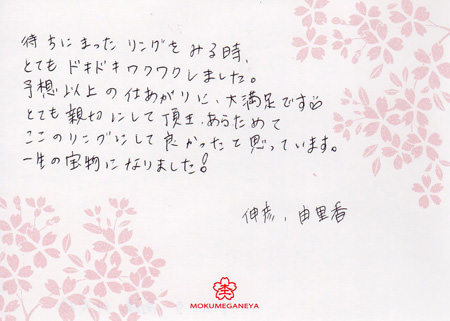 待ちにまった リングを みる時、
とても ドキドキワクワクしました。
予想以上の 仕あがりに、大満足です♡
とても 親切にして頂き、あらためて
ここのリングにして 良かったと思っています。
一生の宝物になりました!
伸彦、由里香
MOKUMEGANEYA